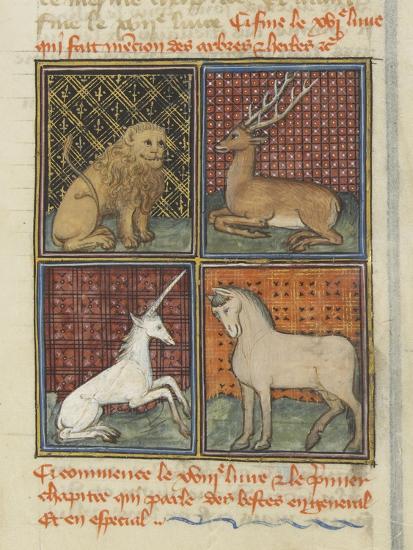 Ci fine le xvij^e livre
qui fait mencion des arbres & herbes &c
Ci commence le xviij^e livre & le p̃mier
chapitre qui parle des bestes en general
Et en especial ..